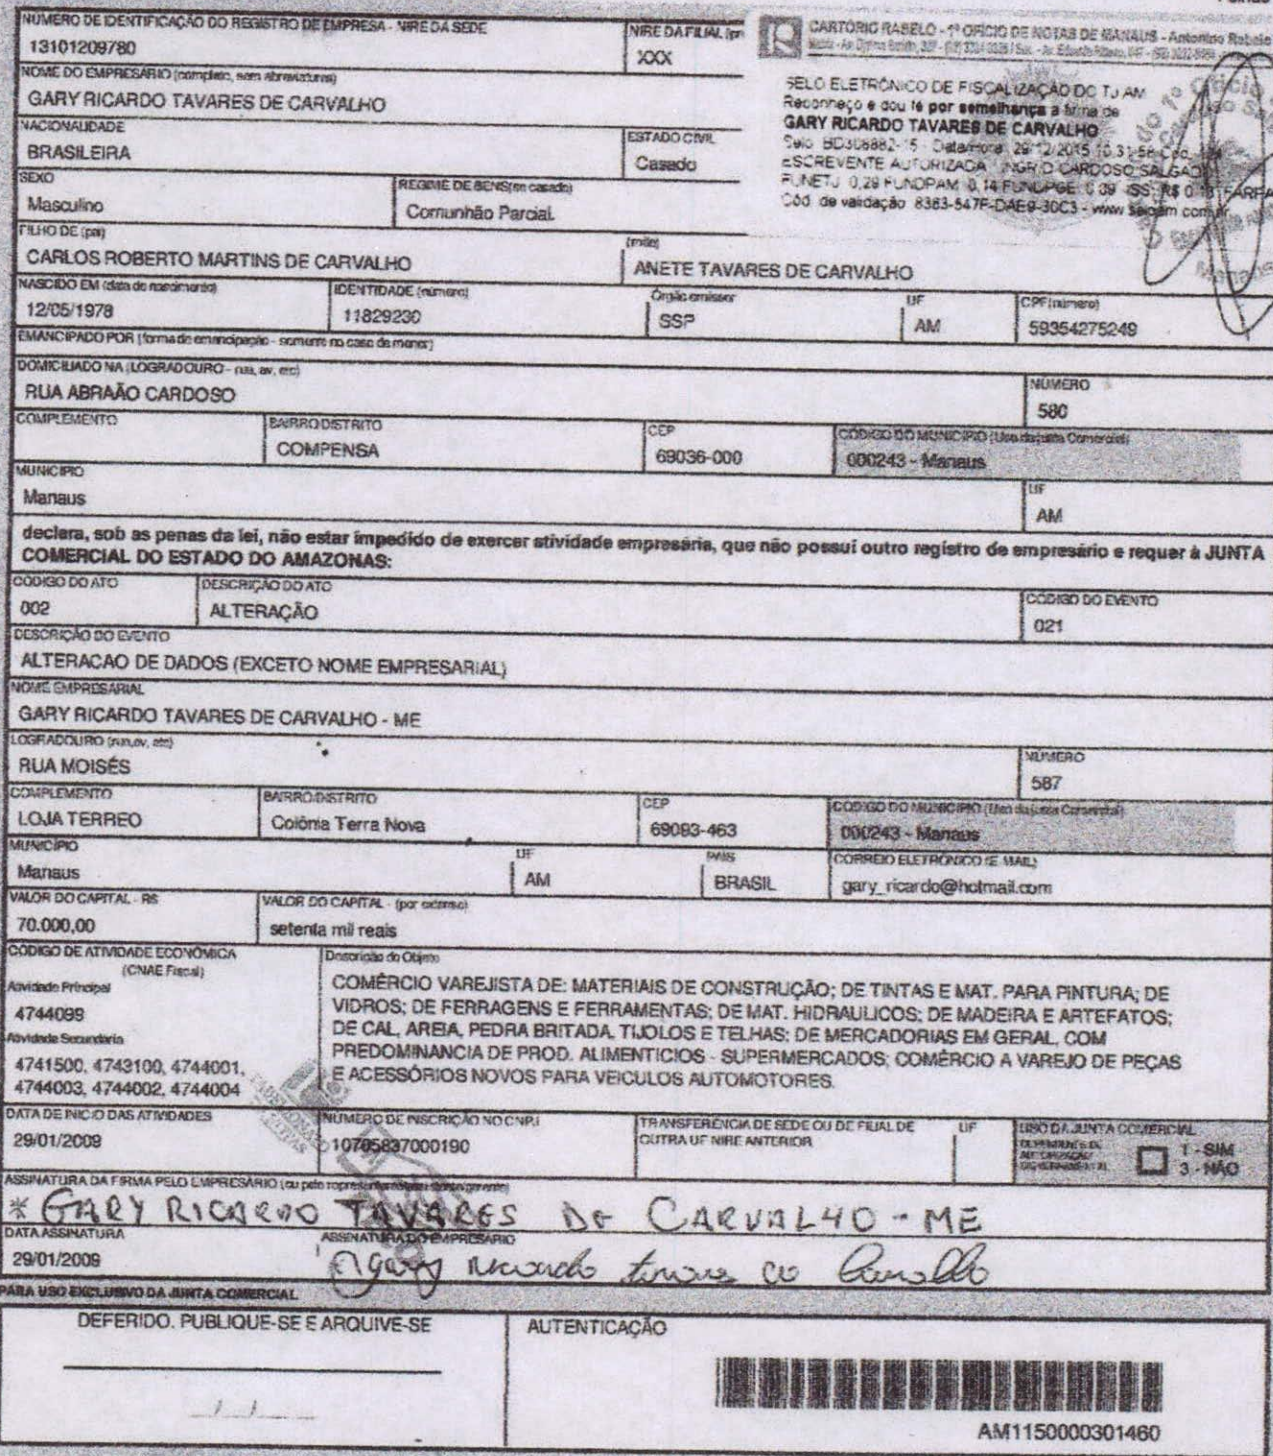 NÚMERO DE IDENTIFICAÇÃO DO REGISTRO DE EMPRESA - NIRE DA SEDE
13101209780
NIRE DA FILIAL
XXX
CARTÓRIO RABELO - 1º OFÍCIO DE NOTAS DE MANAUS - Antonino Rabelo
SELO ELETRÔNICO DE FISCALIZAÇÃO DO TJ AM
Reconheço e dou fé por semelhança a firma de
GARY RICARDO TAVARES DE CARVALHO
Selo BD308882-15 - Data/Hora 29/12/2015 10:31:58
ESCREVENTE AUTORIZADA INGRID CARDOSO SALGADO
FUNETJ 0,29 FUNDPAM 0,14 FUNDPGE 0,09 ISS R$
Cód. de validação 8363-547F-DAE9-30C3
NOME DO EMPRESÁRIO (completo, sem abreviaturas)
GARY RICARDO TAVARES DE CARVALHO
NACIONALIDADE
BRASILEIRA
ESTADO CIVIL
Casado
SEXO
Masculino
REGIME DE BENS(se casado)
Comunhão Parcial
FILHO DE (pai)
CARLOS ROBERTO MARTINS DE CARVALHO
(mãe)
ANETE TAVARES DE CARVALHO
NASCIDO EM (data de nascimento)
12/05/1978
IDENTIDADE (número)
11829230
Órgão emissor
SSP
UF
AM
CPF(número)
59354275249
EMANCIPADO POR (forma de emancipação - somente no caso de menor)
DOMICILIADO NA (LOGRADOURO - rua, av, etc)
RUA ABRAÃO CARDOSO
NÚMERO
580
COMPLEMENTO
BAIRRO/DISTRITO
COMPENSA
CEP
69036-000
CÓDIGO DO MUNICÍPIO (Uso da Junta Comercial)
000243 - Manaus
MUNICÍPIO
Manaus
UF
AM
declara, sob as penas da lei, não estar impedido de exercer atividade empresária, que não possui outro registro de empresário e requer à JUNTA
COMERCIAL DO ESTADO DO AMAZONAS:
CÓDIGO DO ATO
002
DESCRIÇÃO DO ATO
ALTERAÇÃO
CÓDIGO DO EVENTO
021
DESCRIÇÃO DO EVENTO
ALTERACAO DE DADOS (EXCETO NOME EMPRESARIAL)
NOME EMPRESARIAL
GARY RICARDO TAVARES DE CARVALHO - ME
LOGRADOURO (rua, av, etc)
RUA MOISÉS
NÚMERO
587
COMPLEMENTO
LOJA TERREO
BAIRRO/DISTRITO
Colônia Terra Nova
CEP
69093-463
CÓDIGO DO MUNICÍPIO (Uso da Junta Comercial)
000243 - Manaus
MUNICÍPIO
Manaus
UF
AM
PAÍS
BRASIL
CORREIO ELETRÔNICO (E-MAIL)
gary_ricardo@hotmail.com
VALOR DO CAPITAL - R$
70.000,00
VALOR DO CAPITAL - (por extenso)
setenta mil reais
CÓDIGO DE ATIVIDADE ECONÔMICA
(CNAE Fiscal)
Atividade Principal
4744099
Atividade Secundária
4741500, 4743100, 4744001,
4744003, 4744002, 4744004
Descrição do Objeto
COMÉRCIO VAREJISTA DE: MATERIAIS DE CONSTRUÇÃO; DE TINTAS E MAT. PARA PINTURA; DE
VIDROS; DE FERRAGENS E FERRAMENTAS; DE MAT. HIDRAULICOS; DE MADEIRA E ARTEFATOS;
DE CAL, AREIA, PEDRA BRITADA, TIJOLOS E TELHAS; DE MERCADORIAS EM GERAL, COM
PREDOMINANCIA DE PROD. ALIMENTICIOS - SUPERMERCADOS; COMÉRCIO A VAREJO DE PEÇAS
E ACESSÓRIOS NOVOS PARA VEICULOS AUTOMOTORES.
DATA DE INÍCIO DAS ATIVIDADES
29/01/2009
NÚMERO DE INSCRIÇÃO NO CNPJ
10705837000190
TRANSFERÊNCIA DE SEDE OU DE FILIAL DE
OUTRA UF NIRE ANTERIOR
UF
USO DA JUNTA COMERCIAL
DEPENDENTE DE
AUTORIZAÇÃO
GOVERNAMENTAL
1 - SIM
3 - NÃO
ASSINATURA DA FIRMA PELO EMPRESÁRIO (ou pelo representante/assistente/gerente)
* GARY RICARDO TAVARES DE CARVALHO - ME
DATA ASSINATURA
29/01/2009
ASSINATURA DO EMPRESÁRIO
Gary Ricardo Tavares de Carvalho
PARA USO EXCLUSIVO DA JUNTA COMERCIAL
DEFERIDO. PUBLIQUE-SE E ARQUIVE-SE
AUTENTICAÇÃO
__/__/____
AM1150000301460